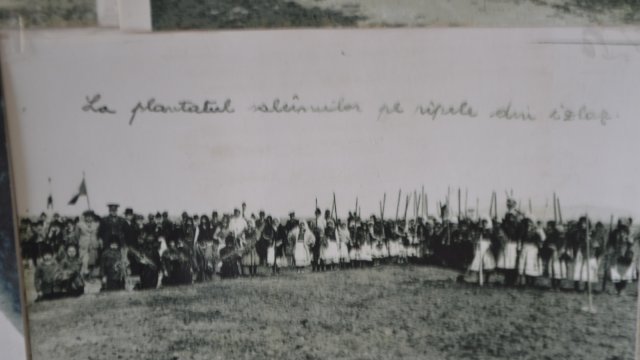 La plantatul salcîmilor pe rîpele din izlaz.